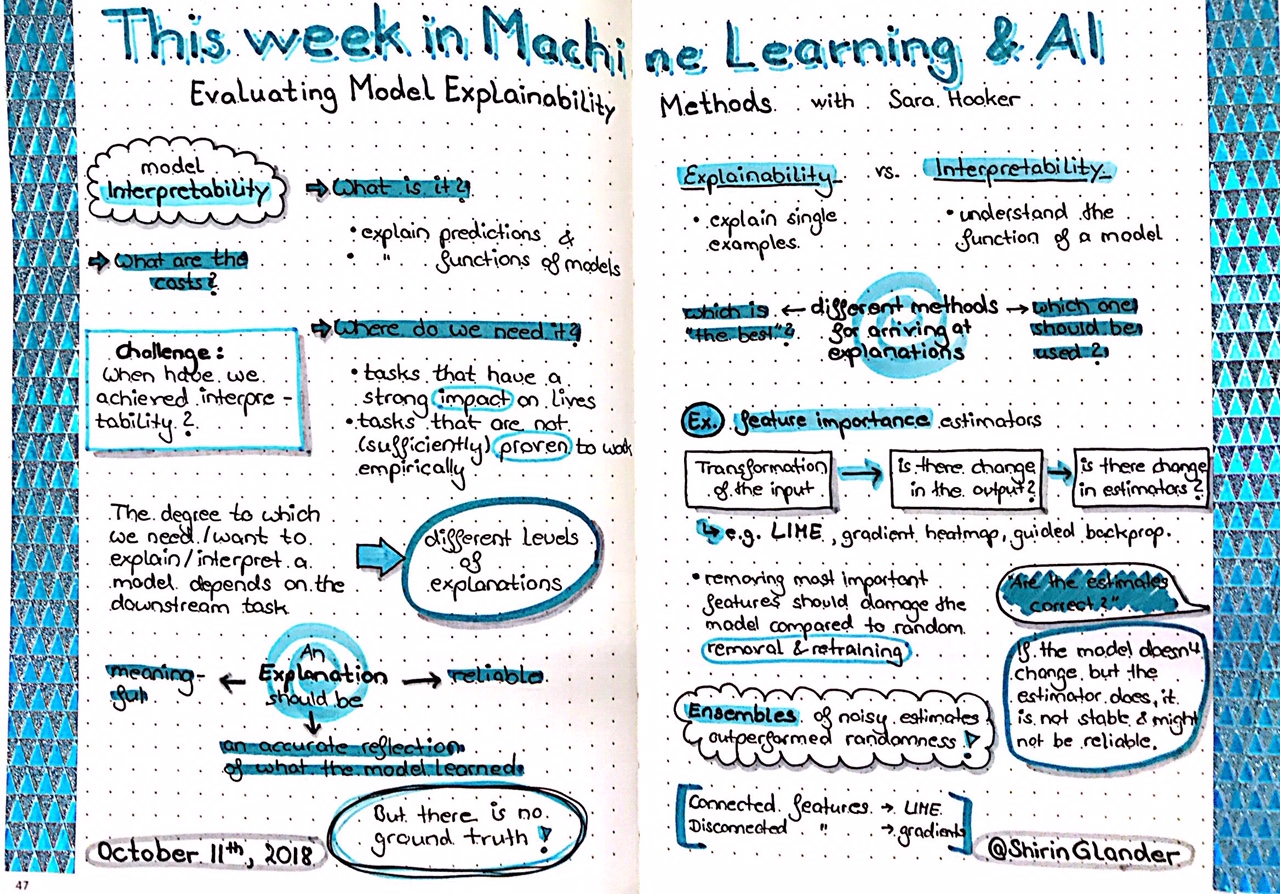 This week in Machine Learning & AI
Evaluating Model Explainability Methods with Sara Hooker
model
Interpretability
⇒ What is it?
• explain predictions &
• " functions of models
⇒ What are the
costs?
⇒ Where do we need it?
• tasks that have a
strong impact on lives
• tasks that are not
(sufficiently) proven to work
empirically
Challenge:
When have we
achieved interpre-
tability?
The degree to which
we need/want to
explain/interpret a
model depends on the
downstream task
different levels
of
explanations
An
Explanation
should be
meaning-
full
← →
reliable
↓
an accurate reflection
of what the model learned
But there is no
ground truth!
October 11th, 2018
47
Explainability vs. Interpretability
• explain single
examples.
• understand the
function of a model
which is
"the best"?
← different methods →
for arriving at
explanations
which one
should be
used?
Ex. feature importance estimators
Transformation
of the input
→
is there change
in the output?
→
is there change
in estimators?
↳ e.g. LIME, gradient heatmap, guided backprop.
• removing most important
features should damage the
model compared to random
removal & retraining
"Are the estimates
correct?"
If the model doesn't
change but the
estimator does, it
is not stable & might
not be reliable.
Ensembles of noisy estimates
outperformed randomness!
Connected features → LIME
Disconnected " → gradients
@ShirinGlander